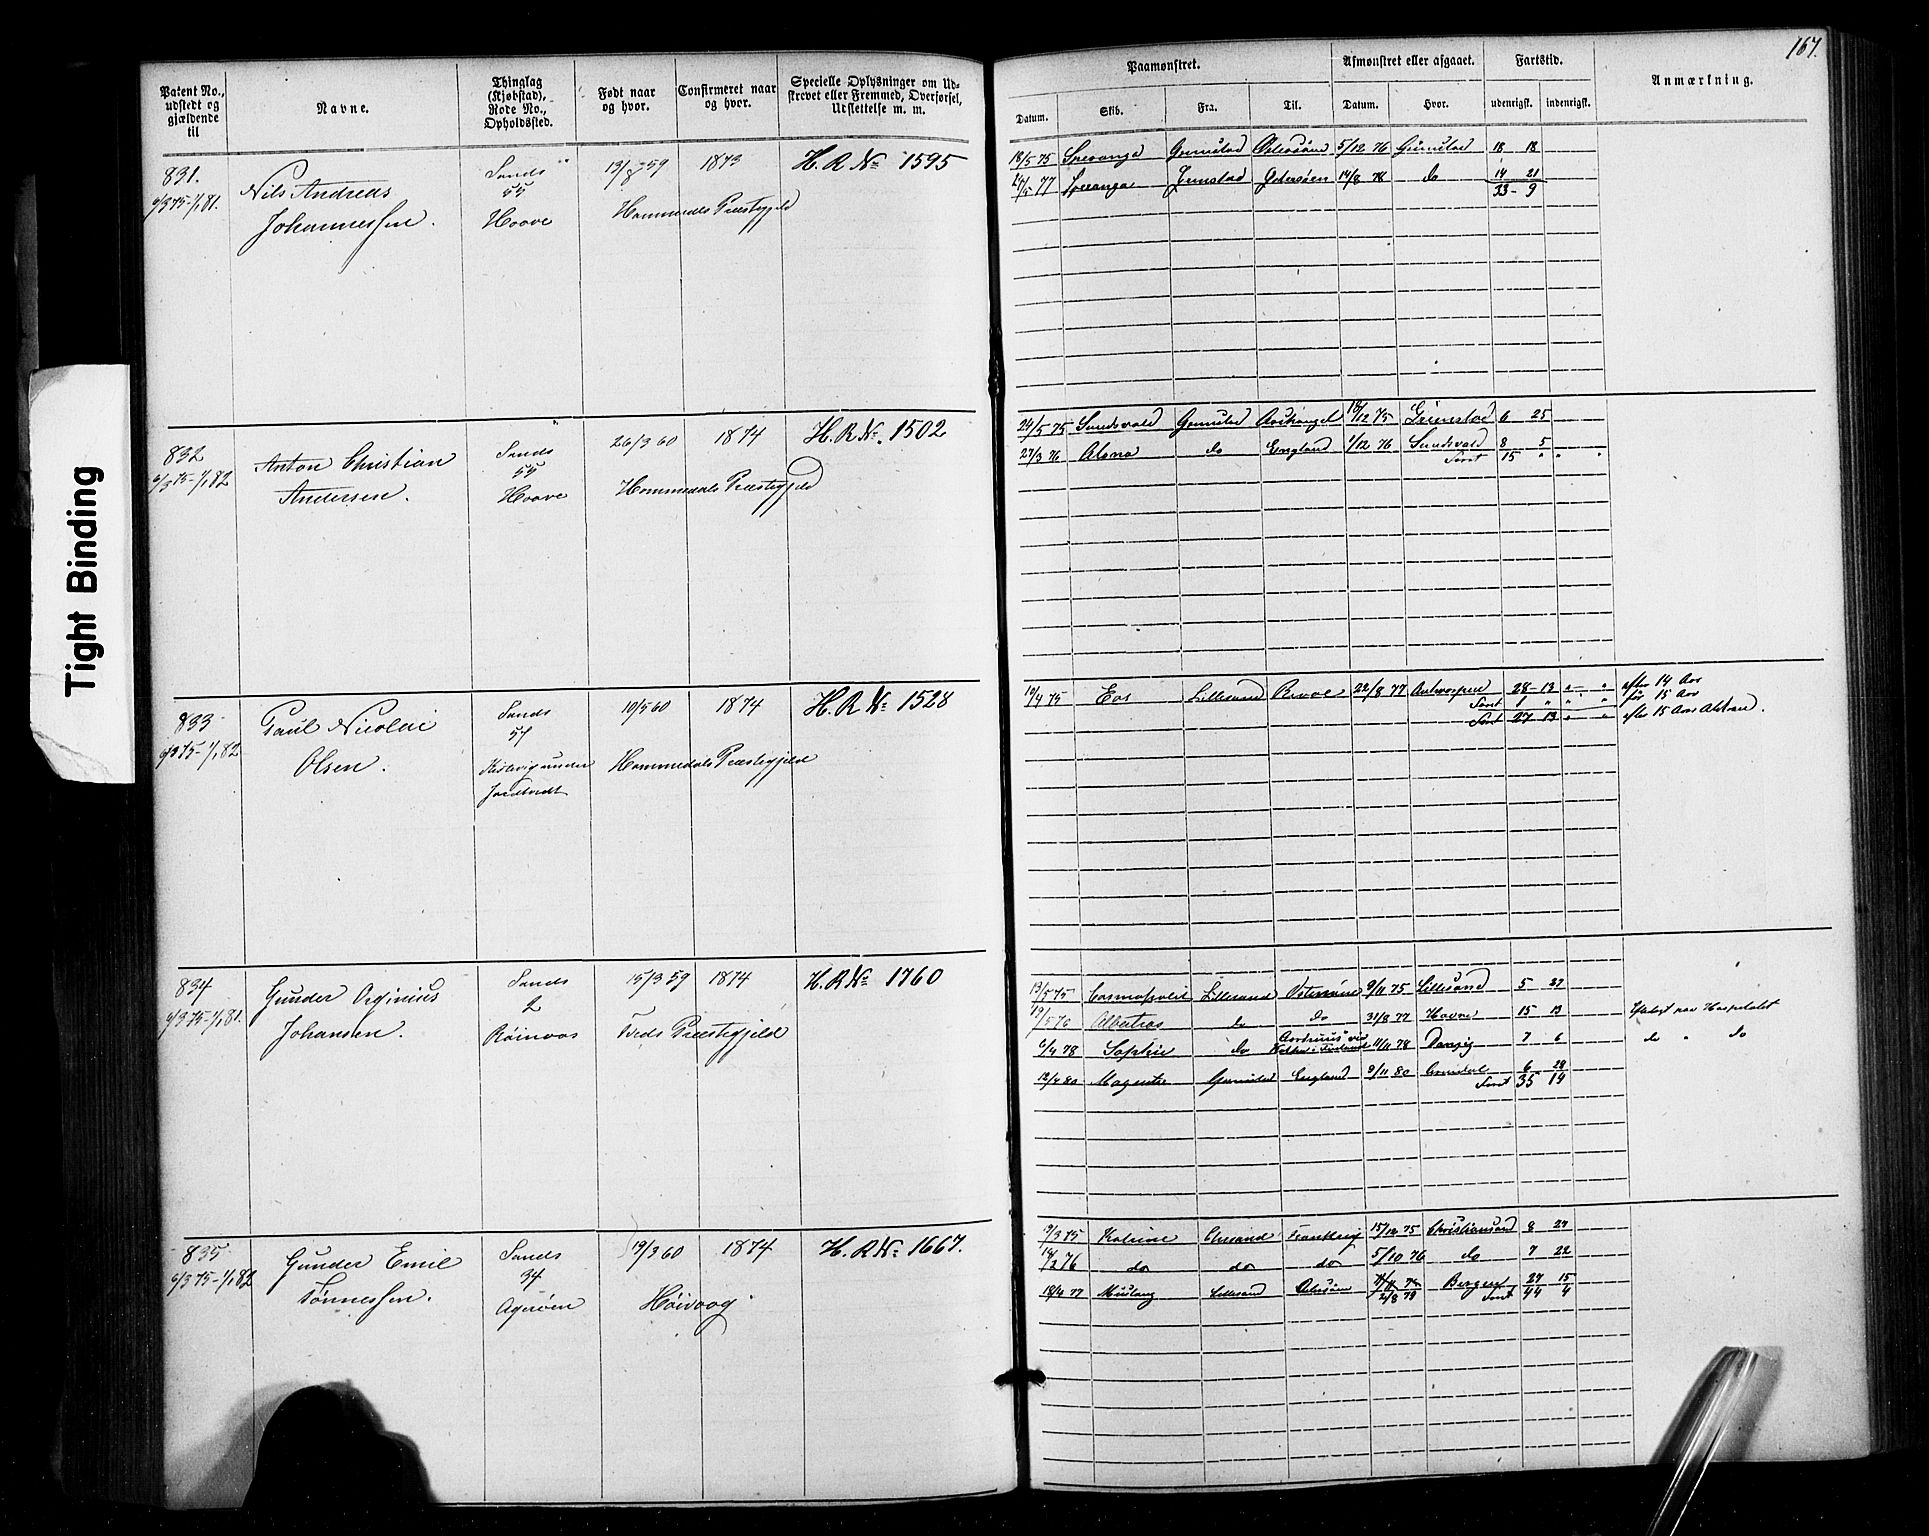 167.
Patent No., udstedt og gjældende til
Navne.
Thinglag (Kjøbstad), Rode No., Opholdssted.
Født naar og hvor.
Confirmeret naar og hvor.
Specielle Oplysninger om Udskrevet eller Fremmed, Overførsel, Udslettelse m. m.
Paamønstret.
Afmønstret eller afgaaet.
Fartstid.
Anmærkning.
Datum.
Skib.
Fra.
Til.
Datum.
Hvor.
udenrigsk.
indenrigsk.
831.
6/3 75 - 1/1 81.
Nils Andreas
Johannessen.
Sands
55
Hoave
13/8 59
1873
Hommedals Præstegjeld
H. R No 1595
18/5 75 Speranza Grimstad Østersøen 5/12 76 Grimstad 18 18
21/5 77 Speranza Grimstad Østersøen 14/8 78 do 14 21
33 - 9
832
6/3 75 - 1/1 82
Anton Christian
Andersen.
Sands
55
Hoave
26/3 60
1874
Hommedals Præstegjeld
H. R No. 1502
24/5 75 Sundsvald Grimstad Archangel 18/12 75 Grimstad 6 25
27/3 76 do England 1/12 76 Sundsvald 8 5
Tient 15 " " "
833
6/3 75 - 1/1 82
Paul Nicolai
Olsen.
Sands
51
10/5 60
1874
Hommedals Præstegjeld
H. R No 1528
10/4 75 Eos Lillesand 22/8 77 Antwerpen 28 - 13 " - " efter 14 Aar
før 15 Aar
27 13 " " efter 15 Aars Alderen.
834
6/3 75 - 1/1 81.
Gunder Orginius
Johansen.
Sands
2
Røinvaas
15/3 59
1874
Præstegjeld
H. R No 1760
13/5 75 Cosmopolit Lillesand Østersøen 9/11 75 Lillesand 5 27
19/5 76 Albatros do do 31/8 77 Havre 15 13 paa Hospitalet
6/4 78 Sophie do 11/11 78 Danzig 7 6 do " do
12/4 80 Grimstad England 9/11 80 Arendal 6 28
35 14
835
6/3 75 - 1/1 82
Gunder Emil
Tønnessen.
Sands
34
Agerøen
19/3 60
1874
Høivaag
H. R No 1667.
19/3 75 Katrine Frankrig 15/12 75 Christiansand 8 27
14/2 76 do do do 5/10 76 do 7 22
18/4 77 Lillesand Østersøen 2/8 79 Bergen 27 15
44 4
Tight Binding